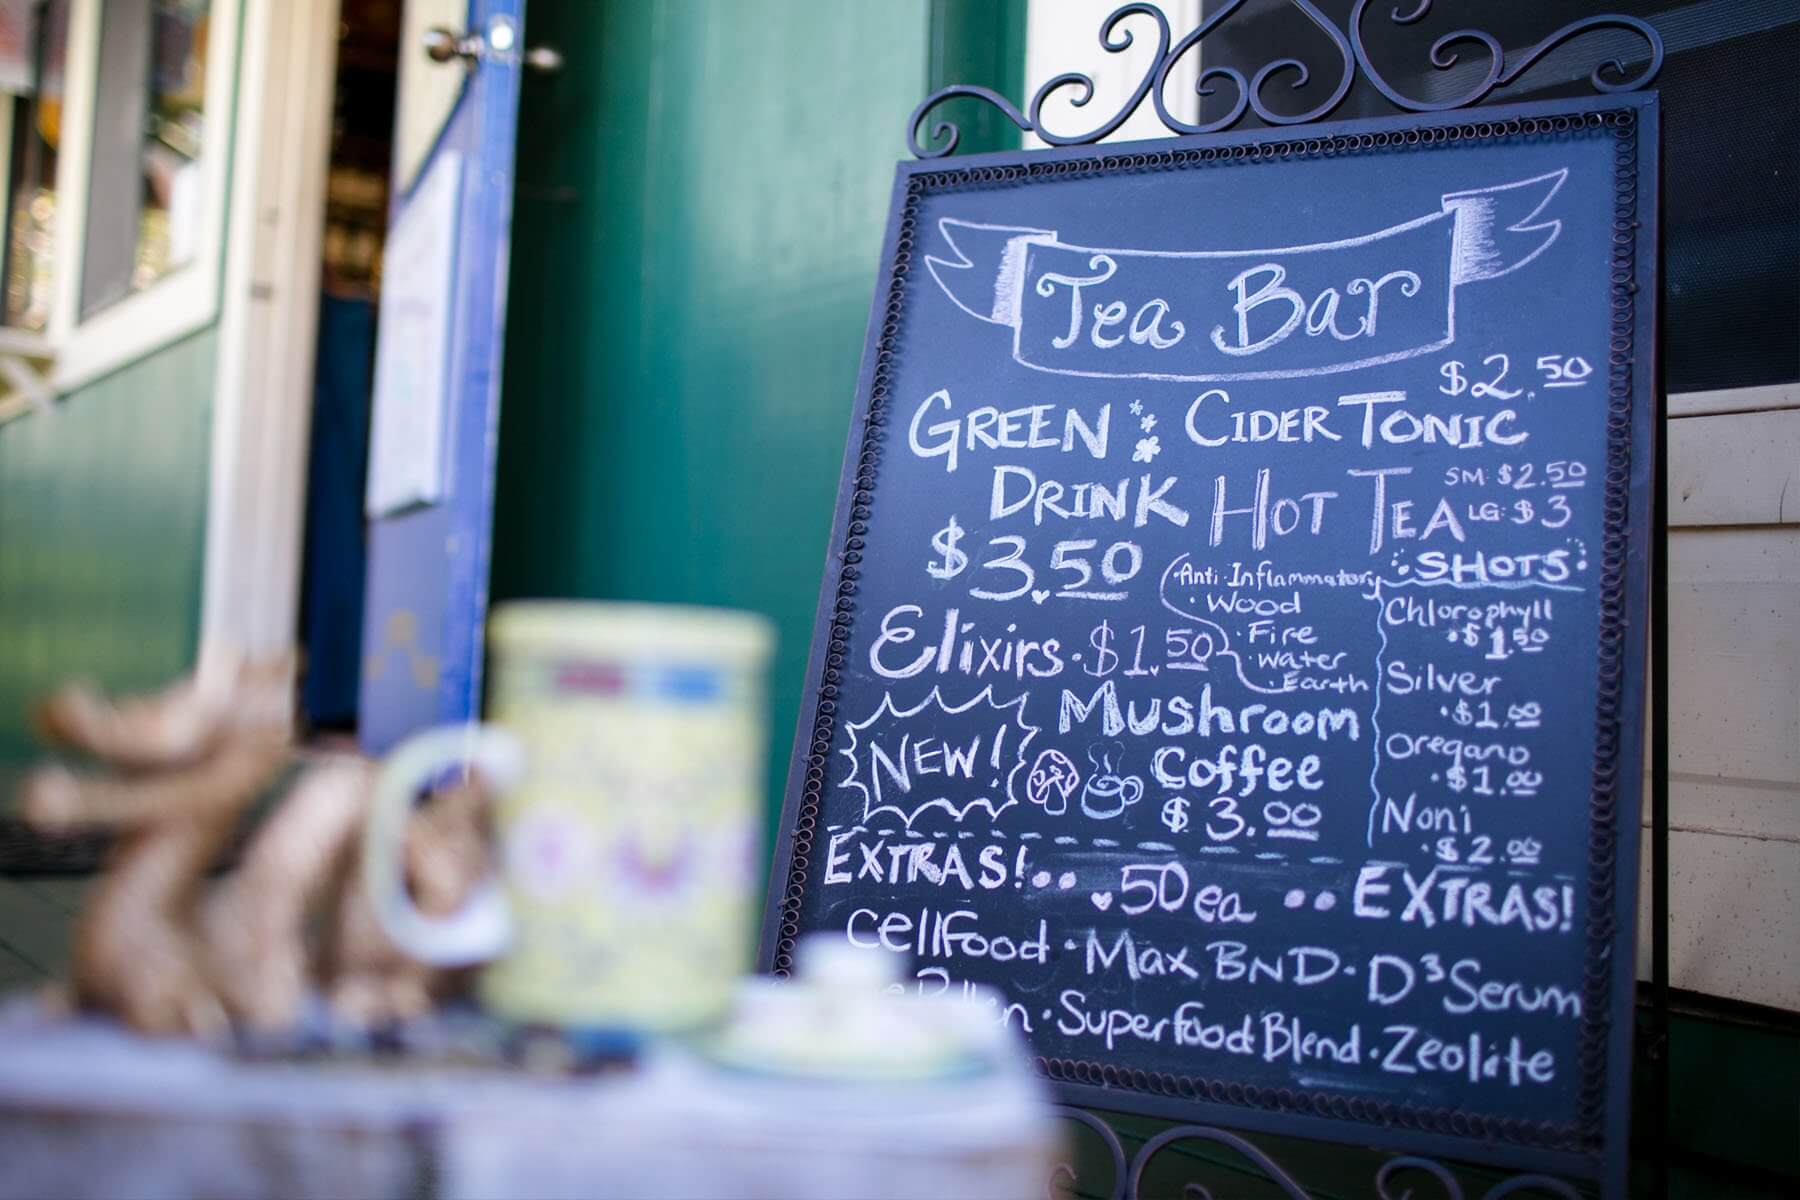 Tea Bar
$2.50
GREEN CIDER TONIC
DRINK HOT TEA SM: $2.50
LG: $3
$3.50
SHOTS
· Anti Inflammatory
· Wood
· Fire
· Water
· Earth
Elixirs · $1.50
Chlorophyll
· $1.50
Silver
· $1.00
Oregano
· $1.00
Noni
· $2.00
NEW! Mushroom
Coffee
$3.00
EXTRAS! .50 ea EXTRAS!
Cellfood · Max BND · D³ Serum
· Superfood Blend · Zeolite